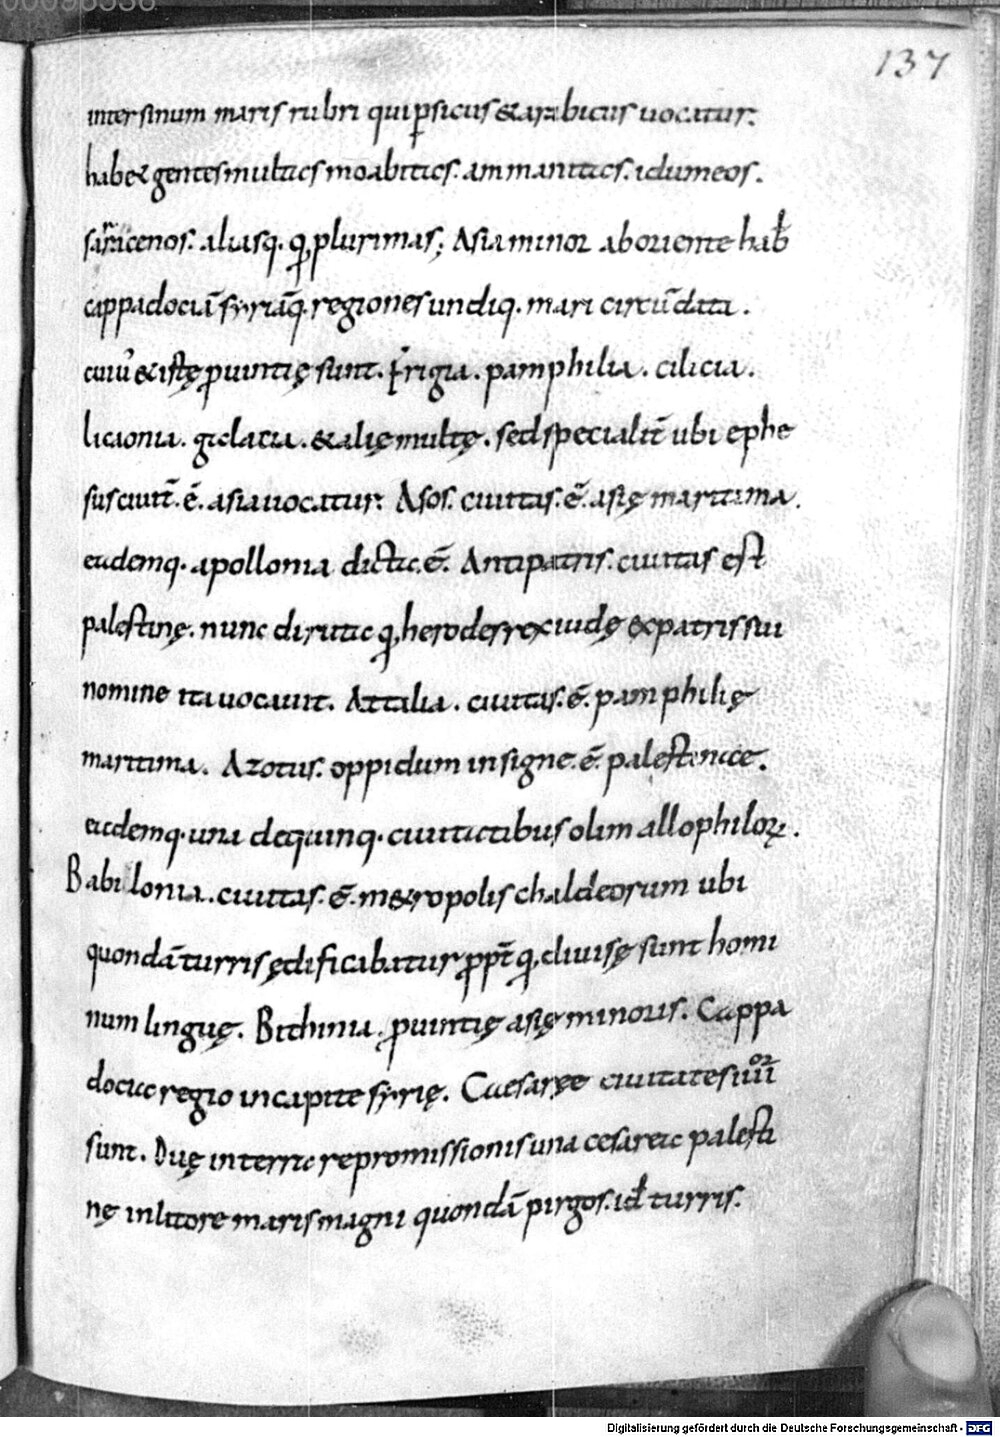 00096336
137
inter sinum maris rubri qui p̱sicus & arabicus uocatur.
hab& gentes multas moabitas. ammanitas. idumeos.
sarracenos. aliasq. q̨ plurimas; Asia minor ab oriente hab̄
cappadociā syriāq. regiones undiq. mari circūdata.
cuiu᾽ & istę ꝓuintię sunt. frigia. pamphilia. cilicia.
licaonia. galatia. & alię multę. sed specialit̄ ubi ephe
sus ciuit̄. ē. asia uocatur. Asos. ciuitas. ē. asię maritima.
eademq. apollonia dicta. ē. Antipatris. ciuitas est
palestinę. nunc diruta q̨ herodes rex iudę ex patris sui
nomine ita uocauit. Attalia. ciuitas. ē. pamphilię
maritima. Azotus. oppidum insigne. ē. palestinae.
eademq. una de quinq. ciuitatibus olim allophiloꝝ.
Babilonia. ciuitas. ē. m&ropolis chaldeorum ubi
quondā turris ędificabatur ꝓpt̄ q̨ diuisę sunt homi
num linguę. Bithinia. ꝓuintię asię minoris. Cappa
docia regio in capite syrię. Caesaręe ciuitates iiiior
sunt. Duę in terra repromissionis una cesarea palesti
nę in litore maris magni quondā pirgos. id̄ turris.
Digitalisierung gefördert durch die Deutsche Forschungsgemeinschaft - DFG